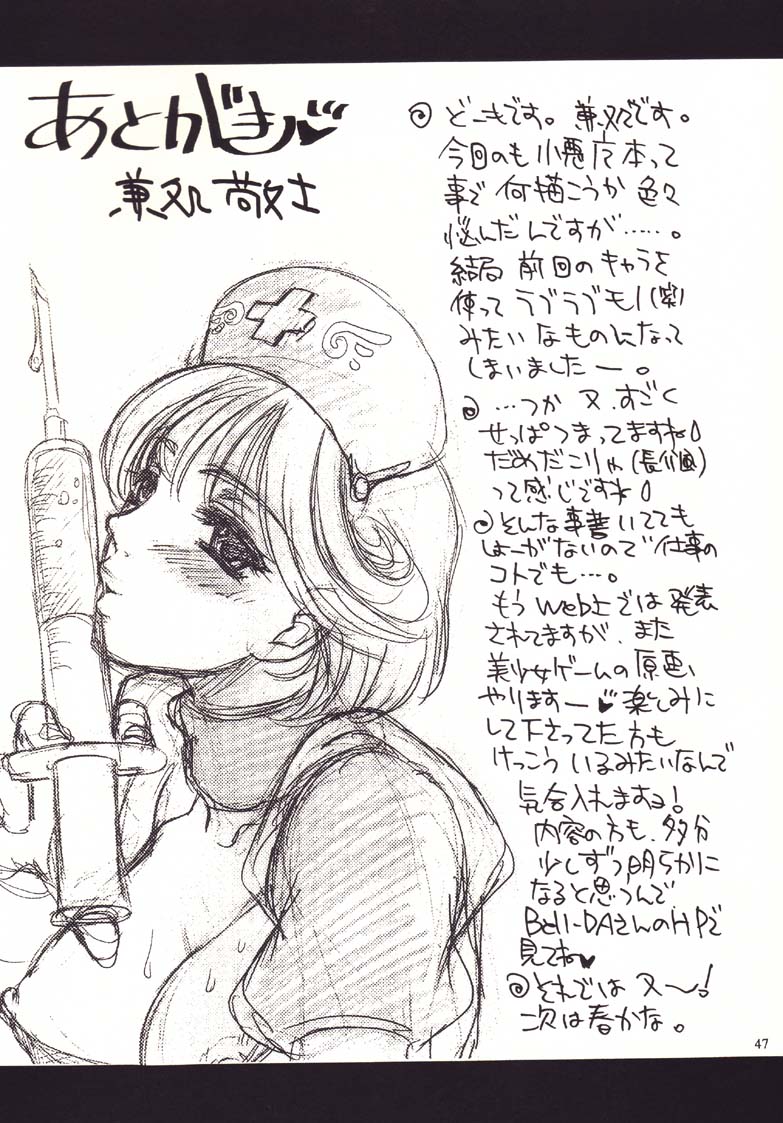 あとがき♥
兼処敬士
どーもです。兼処です。
今回のも小悪店本って
事で何描こうか色々
悩んだんですが……。
結局前回のキャラを
使ってラブラブもノ(笑)
みたいなものになって
しまいましたー。
…つか又、すごく
せっぱつまってますね
だめだこりゃ(長介風)
って感じですね
そんな事書いてても
しょーがないので仕事の
コトでも…。
もうweb上では発表
されてますが、また
美少女ゲームの原画、
やりますー♥楽しみに
して下さってた方も
けっこういるみたいなんで
気合入れますョ!
内容の方も、多分
少しずつ明らかに
なると思うんで
Bell-DAさんのHPで
見てね♥
それでは又〜!
次は春かな。
47